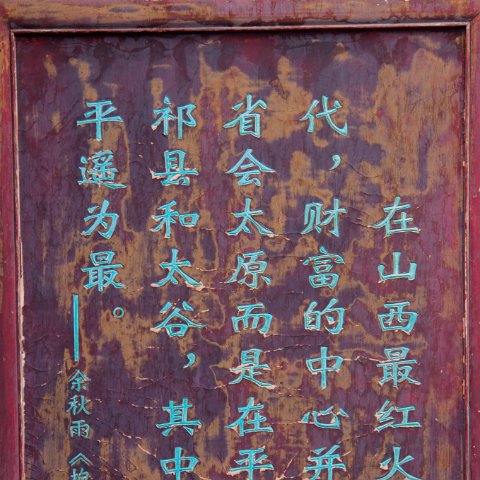 在山西最红火
代，财富的中心并
省会太原而是在平
祁县和太谷，其中
平遥为最。
——余秋雨《抱